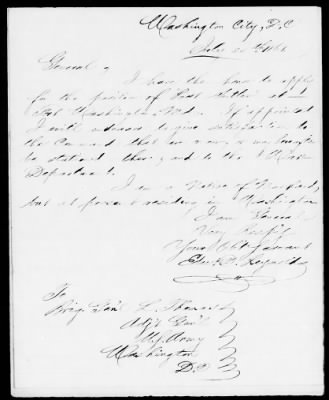 Washington City, D.C.
July
General,
I have the honor to apply
for the position of Post Sutler at
Fort Washington, Md. If appointed
I will endeavor to give satisfaction to
the Command that now is or may hereafter be
stationed there, and to the
Department.
I am a Native of Maryland,
but at present residing in Washington
I am General
Very Respfly
Your Obt Servant
Reynolds
To
Brig Gen'l L. Thomas
Adj't Gen'l
U.S. Army
Washington
D.C.